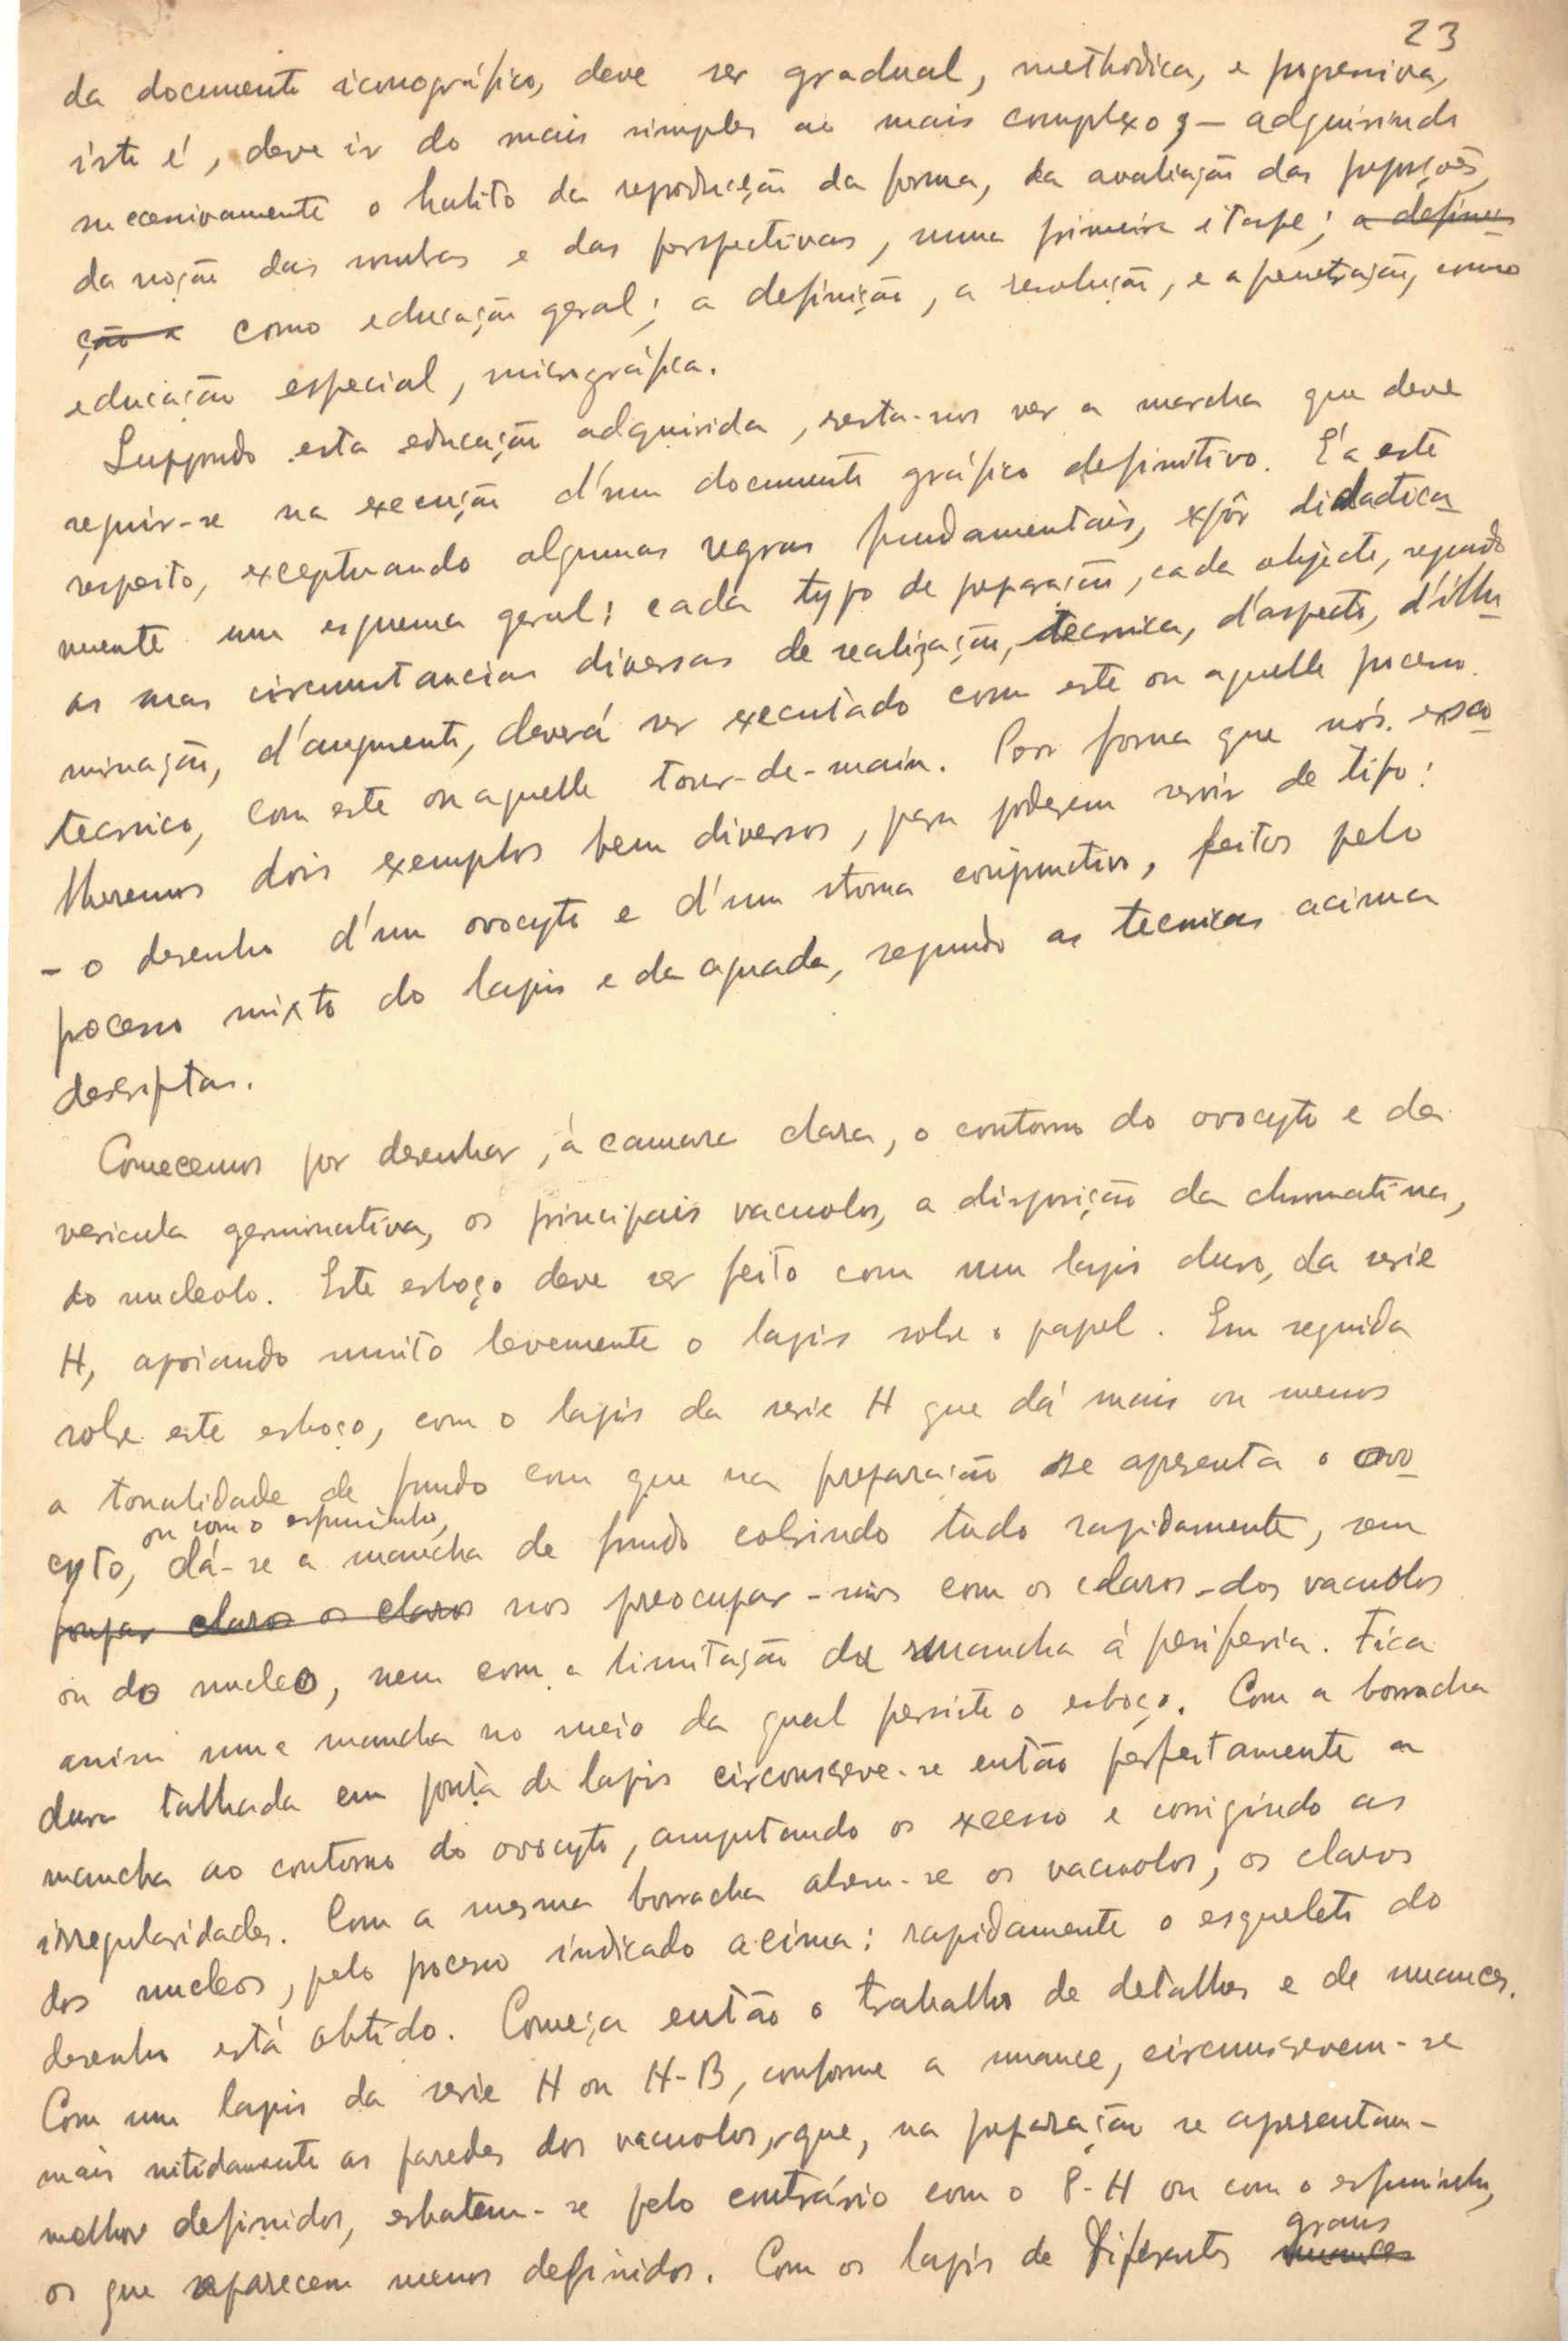 23
da documento iconográfico, deve ser gradual, methodica, e progressiva,
isto é, deve ir do mais simples ao mais complexo; — adquirindo
successivamente o habito da reprodução da forma, da avaliação das proporções,
da noção das sombras e das perspectivas, numa primeira etape; a defini-
ção e como educação geral; a definição, a resolução, e a penetração, como
educação especial, micrográfica.
Suppondo esta educação adquirida, resta-nos ver a marcha que deve
seguir-se na execução d'um documento gráfico definitivo. É a este
respeito, exceptuando algumas regras fundamentais, expôr didactica-
mente um esquema geral: cada typo de preparação, cada objecto, segundo
as suas circumstancias diversas de realização, tecnica, d'aspecto, d'illu-
minação, d'augmento, deverá ser executado com este ou aquelle processo
tecnico, com este ou aquelle tour-de-main. Por forma que nós esco-
lheremos dois exemplos bem diversos, para poderem servir de tipo:
- o desenho d'um ovocyto e d'um stoma conjunctivo, feitos pelo
processo mixto do lapis e da aguada, segundo as tecnicas acima
descriptas.
Comecemos por desenhar, á camara clara, o contorno do ovocyto e da
vesicula germinativa, os principais vacuolos, a disposição da chromatina,
do nucleolo. Este esboço deve ser feito com um lapis duro, da serie
H, apoiando muito levemente o lapis sobre o papel. Em seguida
sobre este esboço, com o lapis da serie H que dá mais ou menos
a tonalidade de fundo com que na preparação se apresenta o ovo-
ou com o esfuminho,
cyto, dá-se a mancha de fundo cobrindo tudo rapidamente, sem
poupar claros os claros nos preocupar-nos com os claros dos vacuolos
ou do nucleo, nem com a limitação da mancha á periferia. Fica
assim uma mancha no meio da qual persiste o esboço. Com a borracha
dura talhada em ponta de lapis circonscreve-se então perfeitamente a
mancha ao contorno do ovocyto, amputando os excesso e corrigindo as
irregularidades. Com a mesma borracha abrem-se os vacuolos, os claros
dos nucleos, pelo processo indicado acima: rapidamente o esqueleto do
desenho está obtido. Começa então o trabalho de detalhes e de nuances.
Com um lapis da serie H ou H-B, conforme a nuance, circumscrevem-se
mais nitidamente as paredes dos vacuolos, que, na preparação se apresentam-
melhor definidos, esbatem-se pelo contrário com o P-H ou com o esfuminho,
graus
os que aparecem menos definidos. Com os lapis de diferentes nuances